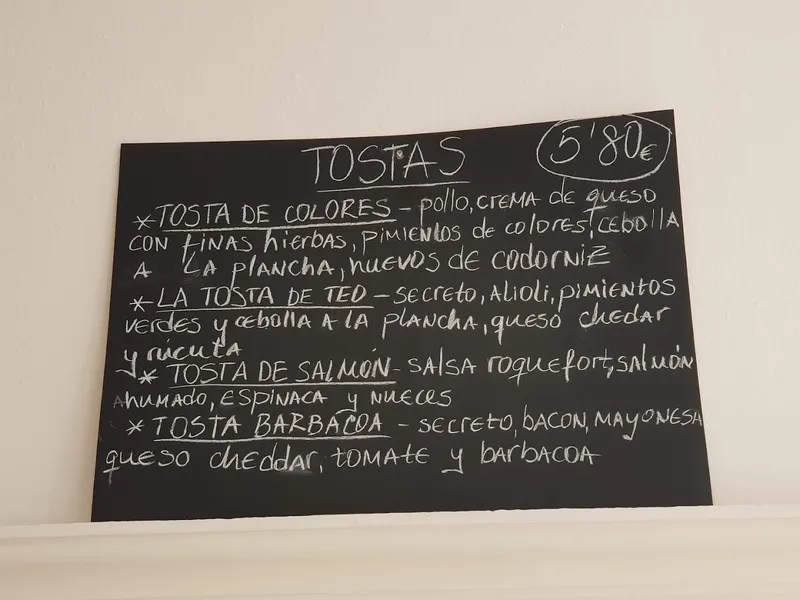 TOSTAS
5'80€
* TOSTA DE COLORES - pollo, CREMA de queso
CON finas hierbas, pimientos de colores, CEBOLLA
A LA plancha, huevos de codorniz
* LA TOSTA DE TED - secreto, Alioli, pimientos
verdes y cebolla A LA plancha, queso chedar
y rúcula
* TOSTA DE SALMÓN - SALSA roquefort, SALMÓN
Ahumado, ESPINACA y nueces
* TOSTA BARBACOA - secreto, BACON, MAYONESA
queso cheddar, tomate y BARBACOA